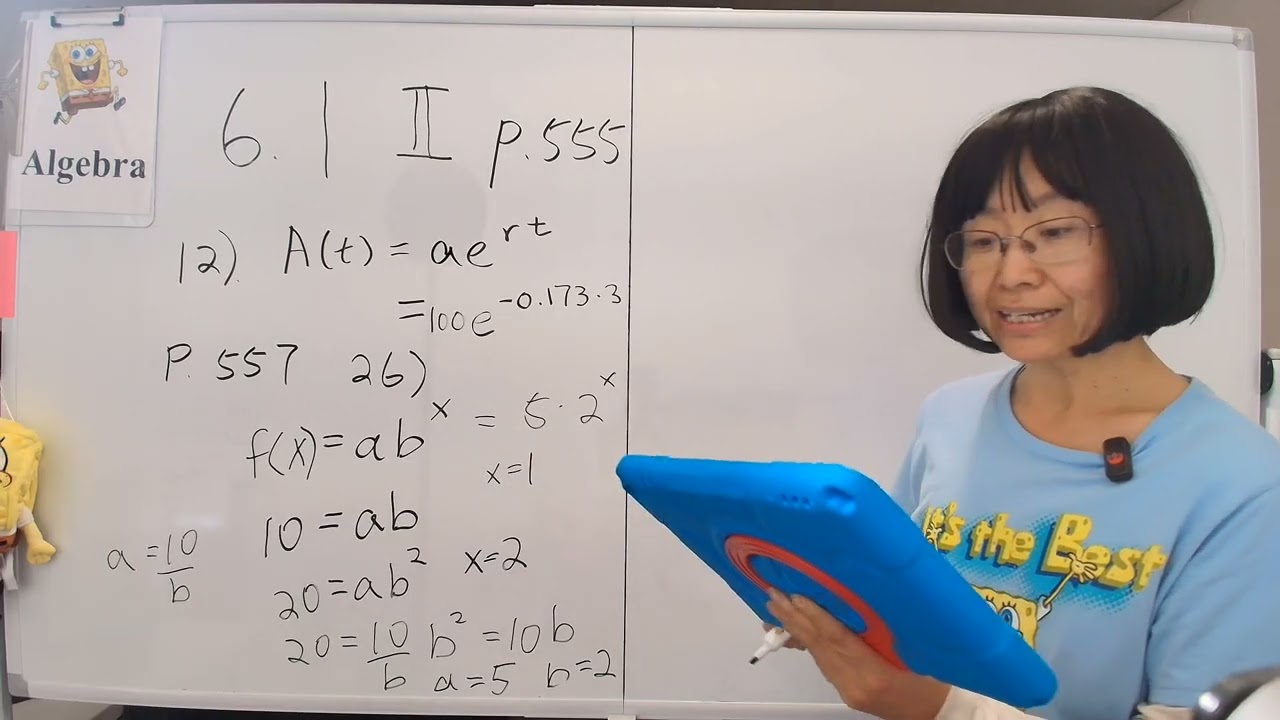 Algebra
6.1 II p.555
12). A(t) = ae^rt
= 100e^-0.173·3
P. 557 26)
f(x) = ab^x = 5·2^x
x=1
10 = ab
a = 10/b
20 = ab^2 x=2
20 = 10/b b^2 = 10b
a=5 b=2
It's the Best